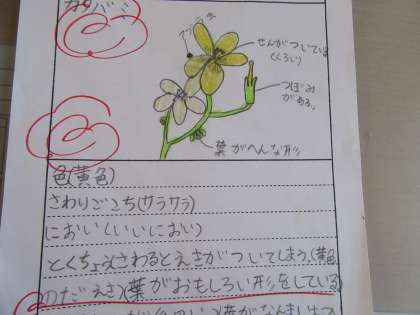 せんがついている
(くろい)
つぼみ
がある。
葉がへんな形
色(黄色)
さわりごこち(サラサラ)
におい(いいにおい)
とくちょう(さわるとえきがついてしまう。(黄色
のだえき)(葉がおもしろい形をしている)